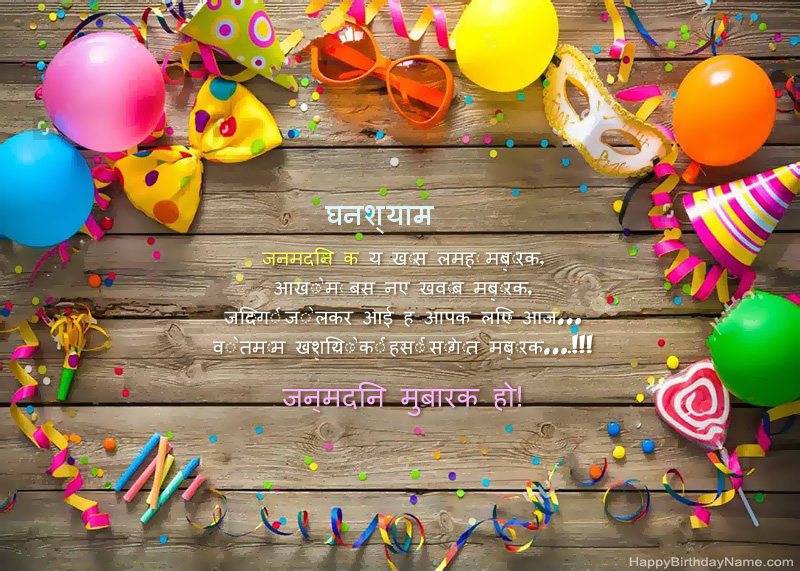 घनश्याम
जनमदिन क य ख़ास लमहा मुबारक,
आँखों में बसे नए ख्वाब मुबारक,
जिंदगी जो लेकर आई है आपके लिए आज...
वो तमाम खुशियों की हंसी सौगात मुबारक...!!!
जन्मदिन मुबारक हो!
HappyBirthdayName.com